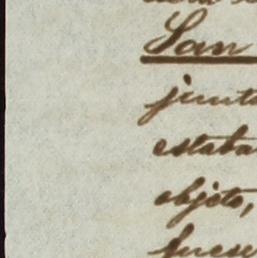 San
junta
estaba
objeto,